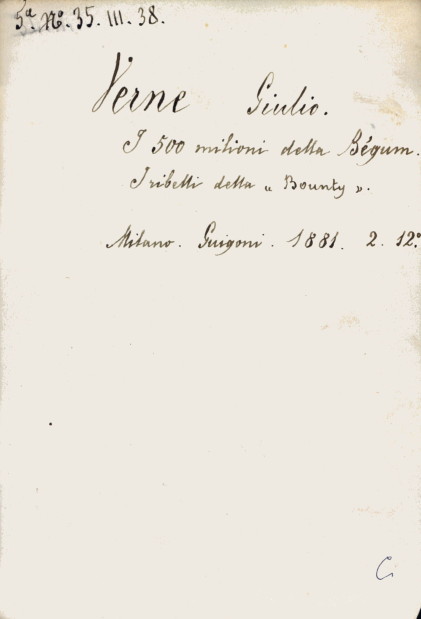 5ª. Nº. 35. III. 38.
Verne Giulio.
I 500 milioni della Bégum.
I ribelli della „ Bounty ".
Milano. Guigoni. 1881. 2. 12º
C